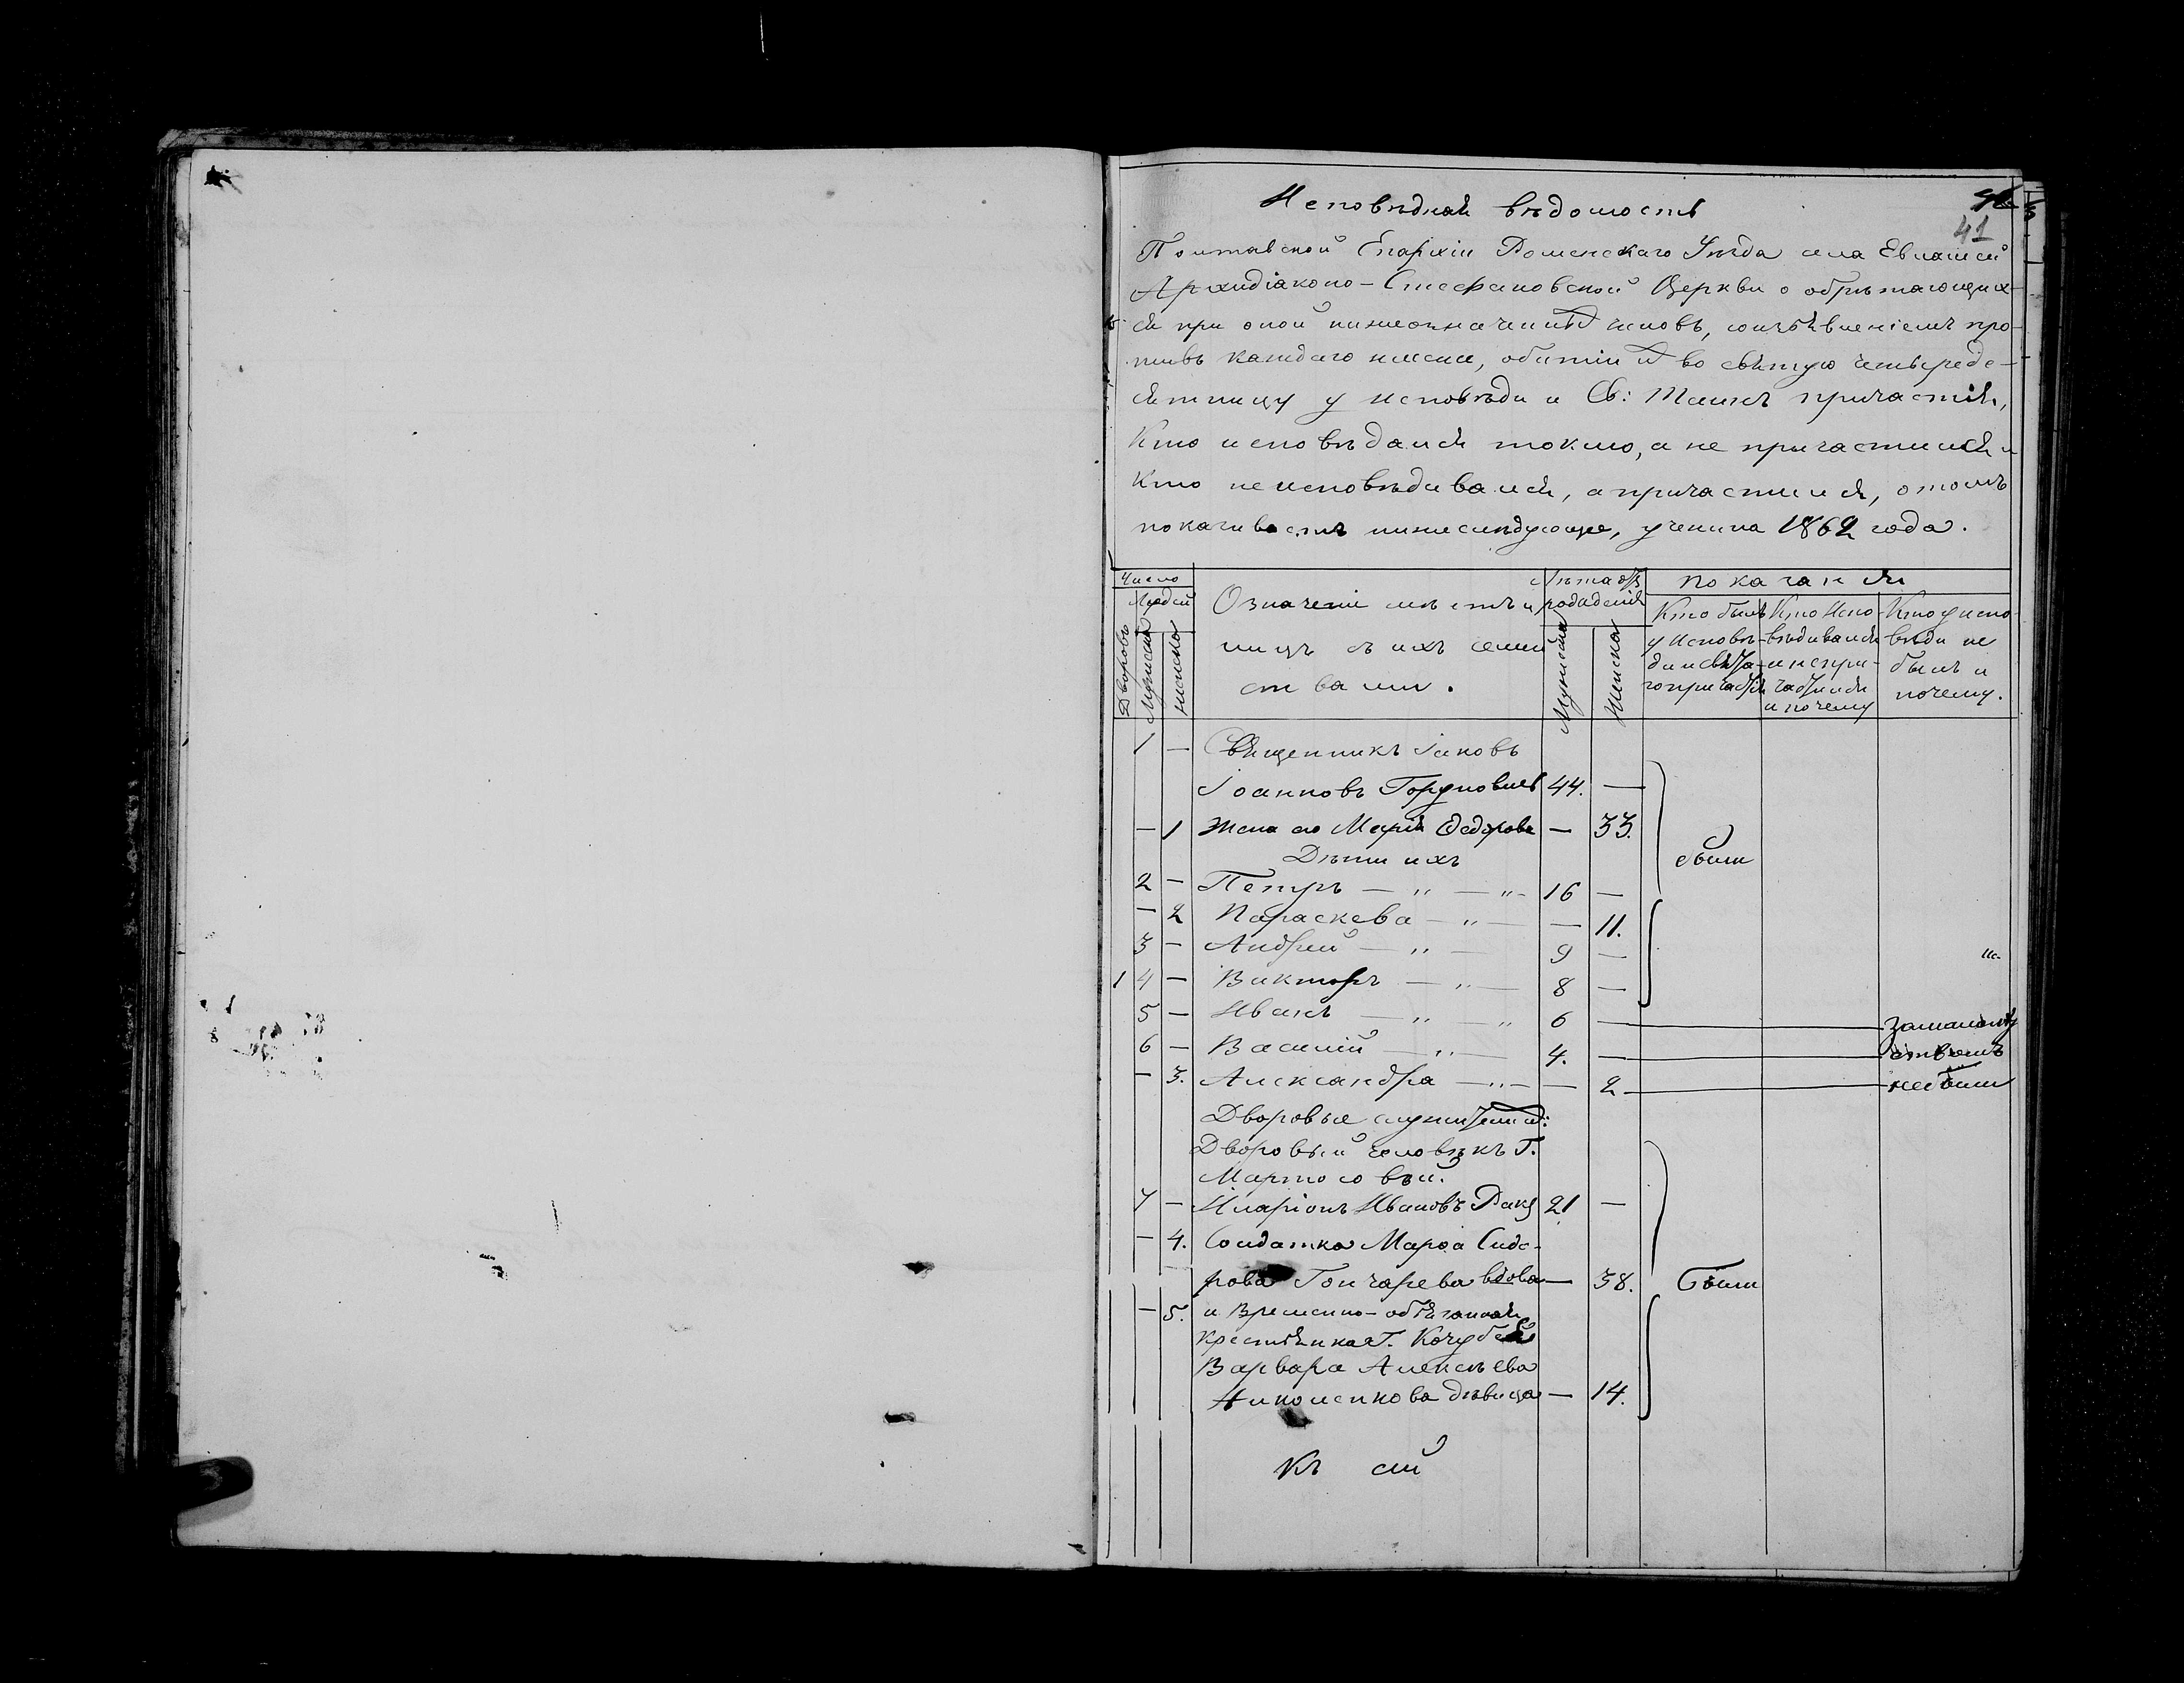 41
Исповѣдная вѣдомость
Полтавской Епархіи Роменскаго Уѣзда села Евлашей
Архидіаконо-Стефановской Церкви о обрѣтающих-
ся при оной нижеозначенныхъ чиновъ, соизъявленіемъ про-
тивъ каждаго имени, о бытіи ихъ во святую четыреде-
сятницу у исповѣди и Св: Таинъ причастія,
Кто исповѣдался токмо, а не причастился и
кто неисповѣдивался, а причастился, отомъ
показиваетъ нижеслѣдующее, учинина 1862 года.
Число
Людей
Дворовъ
Мужеска
Женска
Означеніе мѣстъ и
лицъ съ ихъ семей
ствами.
Лѣта отъ
рожденія
Мужеска
Женска
Показанія
Кто былъ
у Исповѣ-
ди и свята-
го причастія
Кто Испо-
вѣдивался
и не при-
частился
и почему
Кто у испо-
вѣди не
былъ и
почему.
1 — Священникъ Іаковъ
Іоанновъ Горуновичъ 44. —
— 1 Жена его Марія Федорова — 33.
Дѣти ихъ
были
2 — Петръ — „ — „ — 16 —
— 2 Параскева — „ — — 11.
3 — Андрей — „ — 9 —
1 4 — Викторъ — „ — 8 —
5 — Иванъ — „ — „ 6 — замалолѣт
6 — Василій — „ — 4. — ствомъ
— 3. Александра — „ — — 2 небыли
Дворовые служители:
Дворовый человѣкъ Г.
Мартосовый.
7 — Иларіонъ Ивановъ 21 —
— 4. Солдатка Марѳа Сидо-
рова Гончарева вдова — 38. Были
— 5. и Временно-обязанная
крестьянка Г. Кочубей
Варвара Алексѣева
дѣвица — 14.
Къ сей